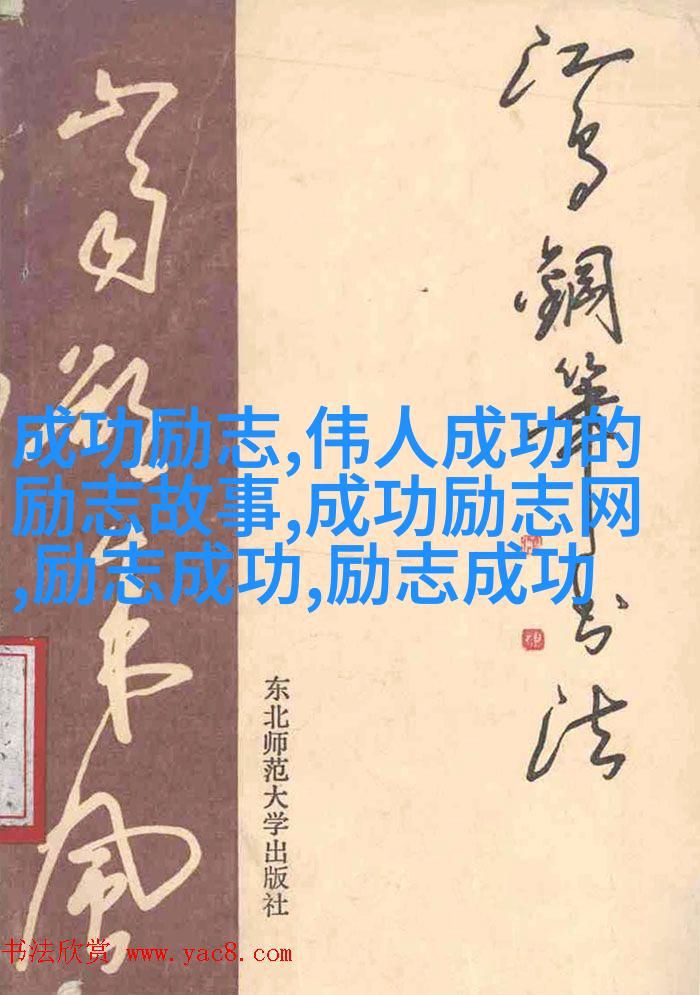 江鸟鋼筆书法
成功励志,伟人成功的
励志故事,成功励志网
,励志成功,励志成功
东北师范大学出版社
书法欣赏 www.yac8.com